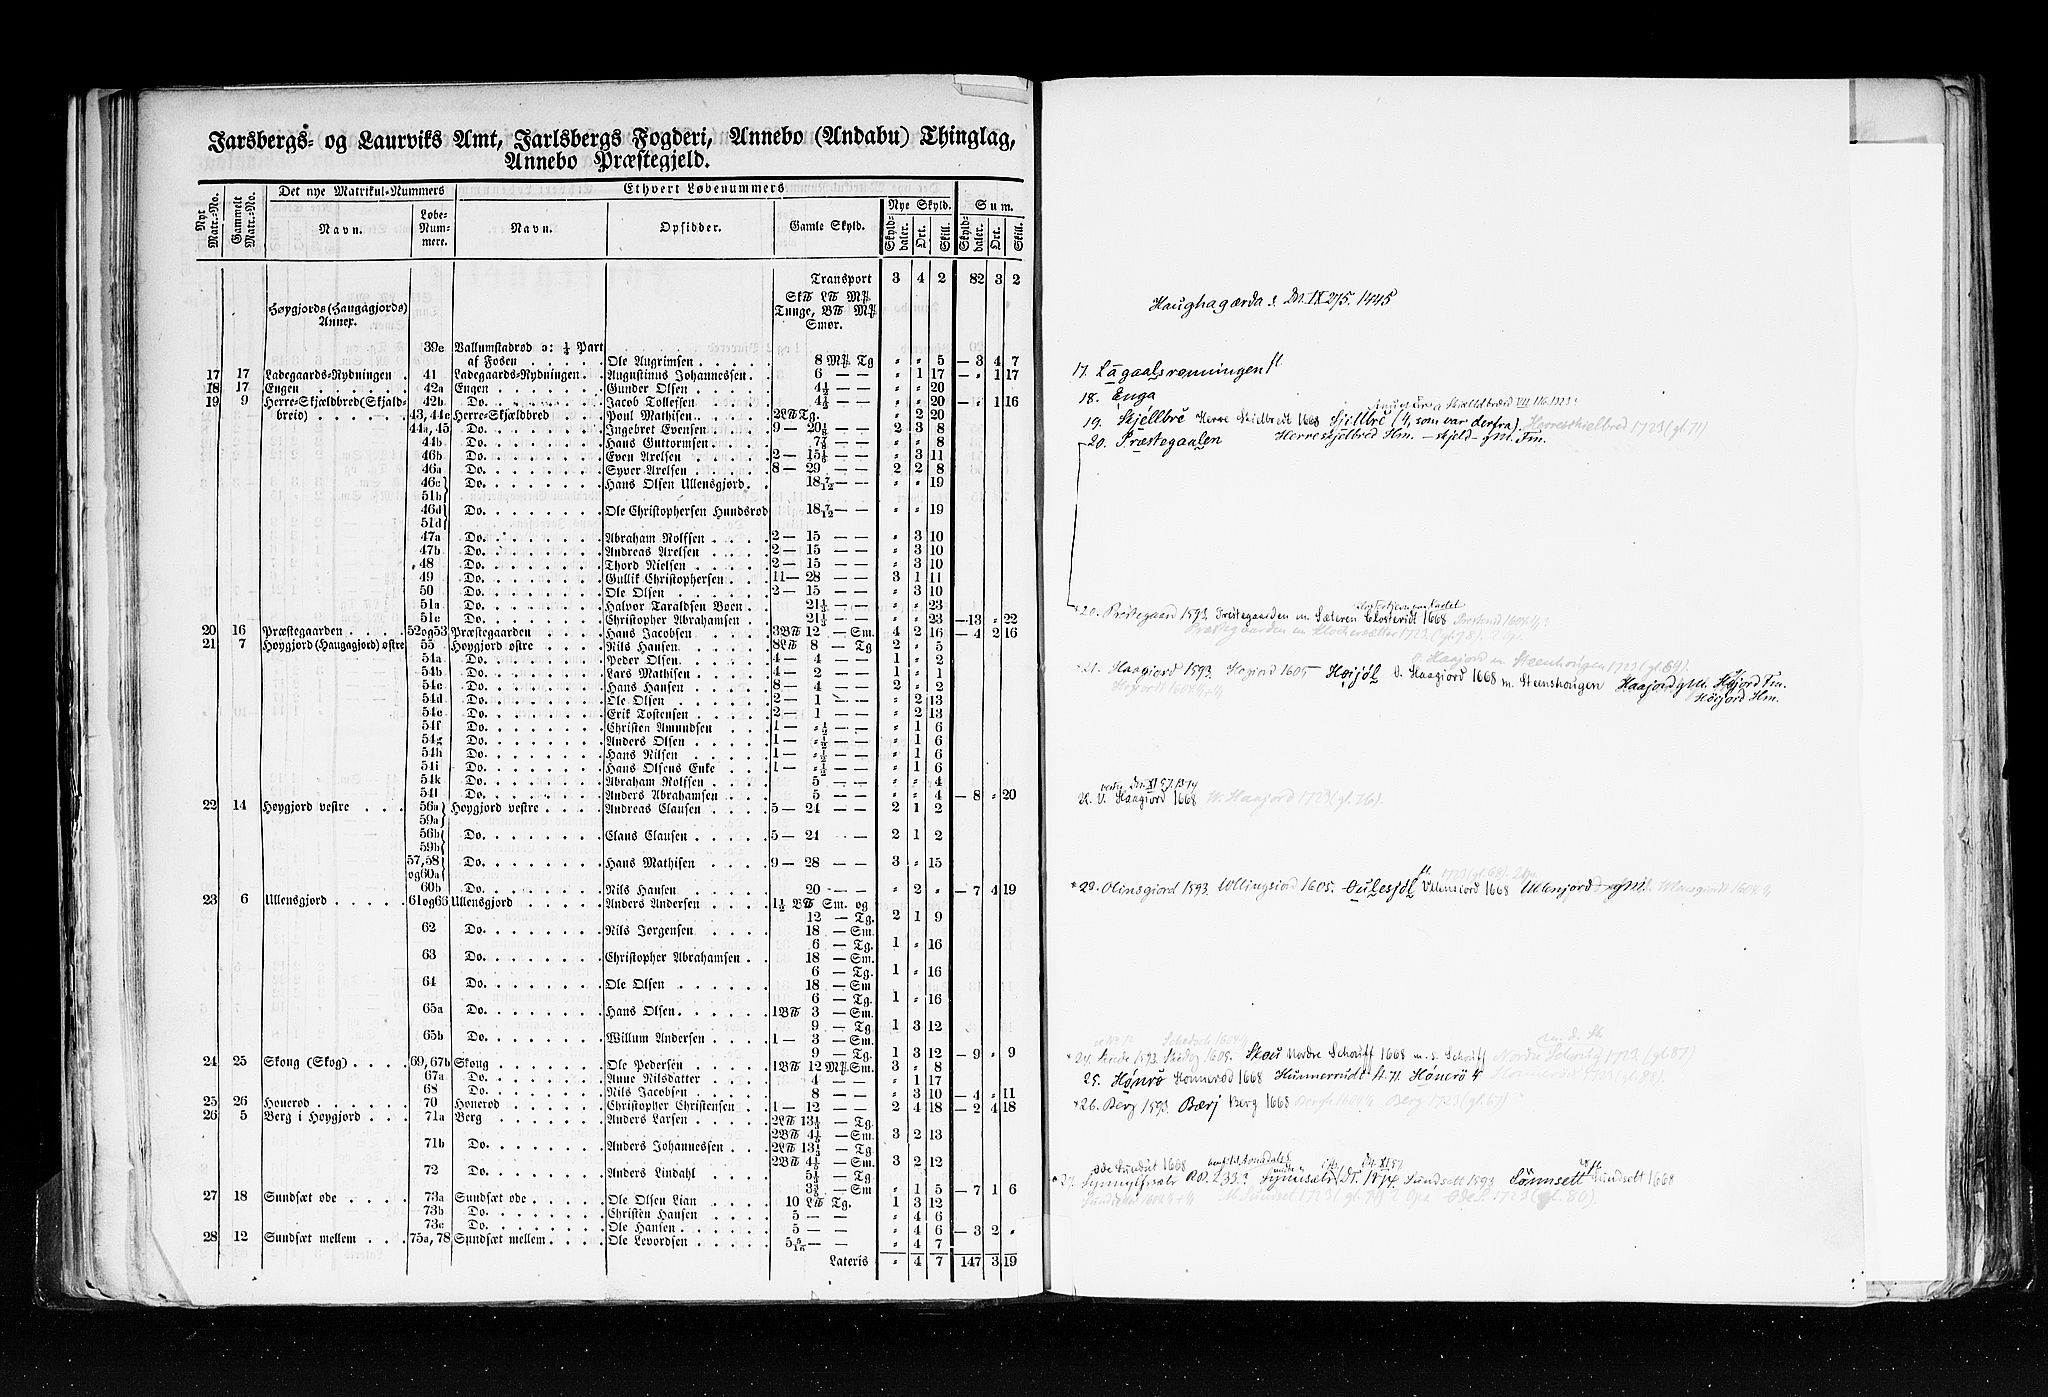 Jarsbergs- og Laurviks Amt, Jarlsbergs Fogderi, Annebo (Andabu) Thinglag,
Annebo Præstegjeld.
Nyt Matr.-No. Gammelt Matr.-No. Det nye Matrikul-Nummers Ethvert Løbenummers
Navn. Løbe-Nummere. Navn. Opsidder. Gamle Skyld. Nye Skyld. Sum.
Skylddaler. Ort. Skill. Skylddaler. Ort. Skill.
Transport 3 4 2 82 3 2
Høygjords (Haugagjords) Annex. Sk℔ L℔ Mk Tunge, B℔ Mk Smør.
39e Vallumstadrød ɔ: ¼ Part
af Fosen Ole Augrimsen 8 Mk Tg „ „ 5 — 3 4 7
17 17 Ladegaards-Rydningen 41 Ladegaards-Rydningen Augustinus Johannessen 6 — — „ 1 17 — „ 1 17
18 17 Engen 42a Engen Gunder Olsen 4½ — — „ „ 20
19 9 Herre-Skjældbred (Skjald- 42b Do. Jacob Tollefsen 4½ — — „ „ 20 — „ 1 16
breid) 43, 44c Herre-Skjældbred Poul Mathisen 2L℔ Tg. „ 2 20
44a, 45 Do. Ingebret Evensen 9 — 20⅙ — — 2 3 8
44b Do. Hans Guttormsen 7¾ — — „ „ 8
46b Do. Even Axelsen 2 — 15⅙ — — „ 3 11
46a Do. Syver Axelsen 8 — 29 — — 2 2 8
46c Do. Hans Olsen Ullensgjord 18 7/12 — — „ „ 19
51b
46d Do. Ole Christophersen Hundsrød 18 7/12 — — „ „ 19
51d
47a Do. Abraham Rolfsen 2 — 15 — — „ 3 10
47b Do. Andreas Axelsen 2 — 15 — — „ 3 10
48 Do. Thord Nielsen 2 — 15 — — „ 3 10
49 Do. Gullik Christophersen 11 — 28 — — 3 1 11
50 Do. Ole Olsen 2 — 15 — — „ 3 10
51a Do. Halvor Taraldsen Boen 21½ — — „ „ 23
51c Do. Christopher Abrahamsen 21½ — — „ „ 23 — 13 „ 22
20 16 Præstegaarden 52 og 53 Præstegaarden Hans Jacobsen 3B℔ 12 — Sm. 4 2 16 — 4 2 16
21 7 Høygjord (Haugagjord) østre 55 Høygjord østre Nils Hansen 8L℔ 8 — Tg 2 „ 5
54a Do. Peder Olsen 4 — 4 — — 1 „ 2
54b Do. Lars Mathisen 4 — 2 — — 1 „ 1
54c Do. Hans Hansen 8 — 4 — — 2 „ 2
54d Do. Ole Olsen 2 — 1 — — „ 2 13
54e Do. Erik Tostensen 2 — 1 — — „ 2 13
54f Do. Christen Amundsen 1 — „½ — — „ 1 6
54g Do. Anders Olsen 1 — „½ — — „ 1 6
54h Do. Hans Nilsen 1 — „½ — — „ 1 6
54i Do. Hans Olsens Enke 1 — „½ — — „ 1 6
54k Do. Abraham Rolfsen 5 — — „ „ 4
54l Do. Anders Abrahamsen 5 — — „ „ 4 — 8 „ 20
22 14 Høygjord vestre 56a Høygjord vestre Andreas Clausen 5 — 24 — — 2 1 2
59a
56b Do. Claus Clausen 5 — 24 — — 2 1 2
59b
57, 58 Do. Hans Mathisen 9 — 28 — — 3 „ 15
og 60a
60b Do. Nils Hansen 20 — — „ 2 „ — 7 4 19
23 6 Ullensgjord 61 og 66 Ullensgjord Anders Andersen 1½ B℔ Sm. og
12 — Tg. 2 1 9
62 Do. Nils Jørgensen 18 — Sm.
6 — Tg. 1 „ 16
63 Do. Christopher Abrahamsen 18 — Sm.
6 — Tg. 1 „ 16
64 Do. Ole Olsen 18 — Sm
6 — Tg. 1 „ 16
65a Do. Hans Olsen 1B℔ 3 — Sm.
9 — Tg 1 3 12
65b Do. Willum Andersen 1 — 3 — Sm.
9 — Tg 1 3 12 — 9 „ 9
24 25 Skoug (Skog) 69, 67b Skoug Ole Pedersen 1B℔ 12 Mk Sm. 3 „ 8
67a Do. Anne Nilsdatter 4 — — „ 1 17
68 Do. Nils Jacobsen 8 — — „ 3 10 — 4 „ 11
25 26 Honerød 70 Honerød Christopher Christensen 1 — 12 — — 2 4 18 — 2 4 18
26 5 Berg i Høygjord 71a Berg Anders Larsen 2L℔ 13⅓ — Tg.
2B℔ 4⅕ — Sm. 3 2 13
71b Do. Anders Johannessen 2L℔ 13⅓ — Tg
2B℔ 4⅕ — Sm. 3 2 12
72 Do. Anders Lindahl 5⅓ — Tg
3⅗ — Sm „ 1 5 — 7 1 6
27 18 Sundsæt øde 73a Sundsæt øde Ole Olsen Lian 10 L℔ Tg. 1 3 12
73b Do. Christen Hansen 5 — — „ 4 6
73c Do. Ole Hansen 5 — — „ 4 6 — 3 2 „
28 12 Sundsæt mellem 75a, 78 Sundsæt mellem Ole Levordsen 5 5/16 — — „ 4 7
Lateris „ 4 7 147 3 19
Haughagærda s. Dn. IX 275. 1445
17. Lagaalsrønningen
18. Enga
19. Skjellbre Herre Skielbredt 1668 Sjellbre (4, som var derfra). Herreskielbred 1723 (gl. 71)
20. Præstegaalen Herreskjelbred Hm. — skjeld — gM. Fm.
20. Prestegaard 1593. Prestegaarden m. Sæteren Closterid 1668
Præstegaarden m. Klockersætter 1723. (gl. 78). 2 Op.
Ø. Haajord m. Steenhougen 1723 (gl. 69).
21. Haagiord 1593. Hogiord 1605 — Høijøl Ø. Haagiord 1668 m. Steenshougen Haajord gM. Højord Fm.
Høijord Hm.
vestre Dn. XI 57. 1514
22. V. Haagiord 1668 W. Haajord 1723 (gl. 76).
1723 (gl. 68). 2 Op.
23. Olinsgiord 1593. Ullingsiord 1605. Oulesjøl Ullensiord 1668 Ullenjord gM.
24. 1593. 1605. Skou Nordre Schouff 1668 m. s. Schouff Nordre 1723. (gl. 87)
25. Hønrö Honnerød 1668 Hunnerrudt Hönerö 4 1723 (gl. 88).
26. Berg 1593. Bærj Berg 1668 Bergh 1604 Berg 1723 (gl. 67)
øde Sundset 1668 Dn. XI 57
27. RB. 233. Sundsett 1593 Sönnsett Sundsett 1668
M. Sundset 1723 (gl. 74) 2 Op. Øde S. 1723 (gl. 80).